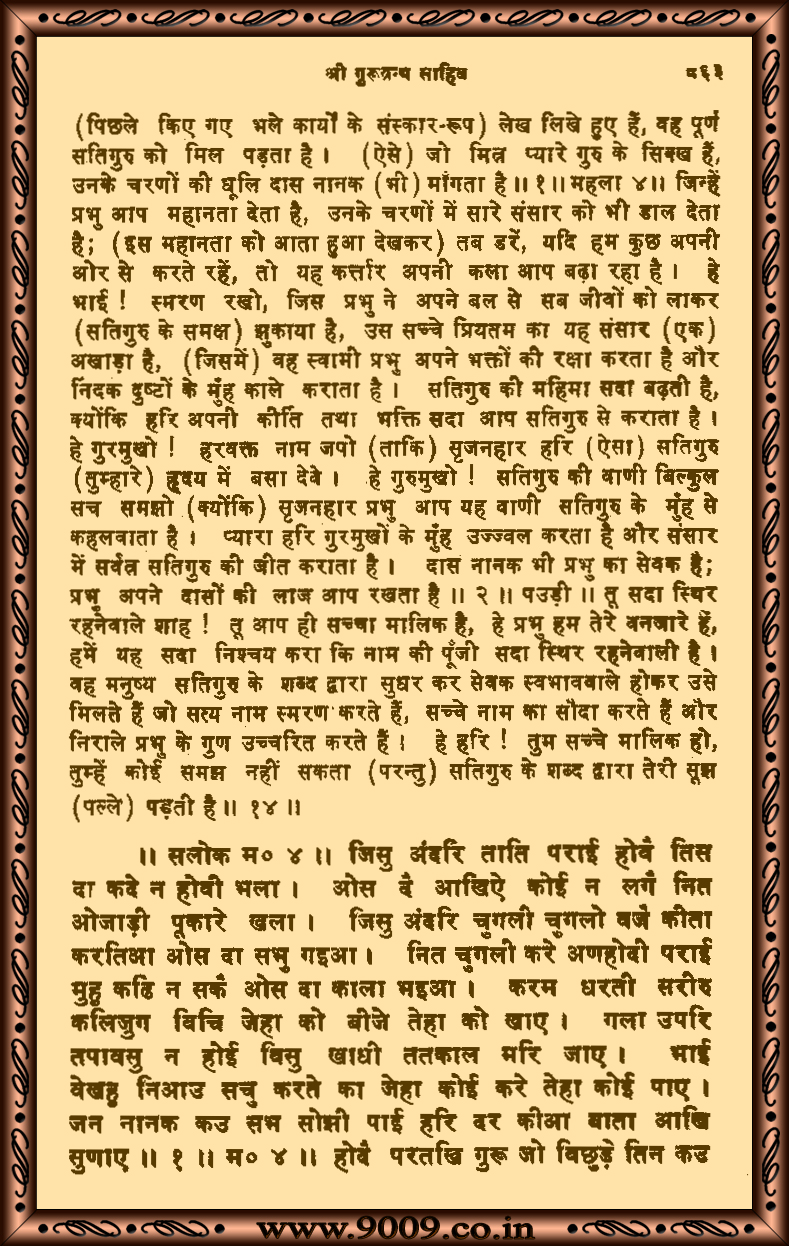 श्री गुरूग्रन्थ साहिब ८६३
(पिछले किए गए भले कार्यों के संस्कार-रूप) लेख लिखे हुए हैं, वह पूर्ण
सतिगुरु को मिल पड़ता है। (ऐसे) जो मित्र प्यारे गुरु के सिक्ख हैं,
उनके चरणों की धूलि दास नानक (भी) माँगता है॥ १॥ महला ४॥ जिन्हें
प्रभु आप महानता देता है, उनके चरणों में सारे संसार को भी डाल देता
है; (इस महानता को आता हुआ देखकर) तब डरें, यदि हम कुछ अपनी
ओर से करते रहें, तो यह कर्त्तार अपनी कला आप बढ़ा रहा है। हे
भाई! स्मरण रखो, जिस प्रभु ने अपने बल से सब जीवों को लाकर
(सतिगुरु के समक्ष) झुकाया है, उस सच्चे प्रियतम का यह संसार (एक)
अखाड़ा है, (जिसमें) वह स्वामी प्रभु अपने भक्तों की रक्षा करता है और
निंदक दुष्टों के मुँह काले कराता है। सतिगुरु की महिमा सदा बढ़ती है,
क्योंकि हरि अपनी कीर्ति तथा भक्ति सदा आप सतिगुरु से कराता है।
हे गुरमुखो! हरवक्त नाम जपो (ताकि) सृजनहार हरि (ऐसा) सतिगुरु
(तुम्हारे) हृदय में बसा देवे। हे गुरुमुखो! सतिगुरु की वाणी बिल्कुल
सच समझो (क्योंकि) सृजनहार प्रभु आप यह वाणी सतिगुरु के मुँह से
कहलवाता है। प्यारा हरि गुरमुखों के मुँह उज्ज्वल करता है और संसार
में सर्वत्र सतिगुरु की जीत कराता है। दास नानक भी प्रभु का सेवक है;
प्रभु अपने दासों की लाज आप रखता है॥ २॥ पउड़ी॥ तू सदा स्थिर
रहनेवाले शाह! तू आप ही सच्चा मालिक है, हे प्रभु हम तेरे वनजारे हैं,
हमें यह सदा निश्चय करा कि नाम की पूँजी सदा स्थिर रहनेवाली है।
वह मनुष्य सतिगुरु के शब्द द्वारा सुधर कर सेवक स्वभाववाले होकर उसे
मिलते हैं जो सत्य नाम स्मरण करते हैं, सच्चे नाम का सौदा करते हैं और
निराले प्रभु के गुण उच्चरित करते हैं। हे हरि! तुम सच्चे मालिक हो,
तुम्हें कोई समझ नहीं सकता (परन्तु) सतिगुरु के शब्द द्वारा तेरी सूझ
(पल्ले) पड़ती है॥ १४॥
॥ सलोक म० ४॥ जिसु अंदरि ताति पराई होवै तिस
दा कदे न होवी भला। ओस दै आखिऐ कोई न लगै नित
ओजाड़ी पूकारे खला। जिसु अंदरि चुगली चुगलो वजै कीता
करतिआ ओस दा सभु गइआ। नित चुगली करे अणहोदी पराई
मुहु कढि न सकै ओस दा काला भइआ। करम धरती सरीरु
कलिजुग विचि जेहा को बीजे तेहा को खाए। गला उपरि
तपावसु न होई विसु खाधी ततकाल मरि जाए। भाई
वेखहु निआउ सचु करते का जेहा कोई करे तेहा कोई पाए।
जन नानक कउ सभ सोझी पाई हरि दर कीआ बाता आखि
सुणाए॥ १॥ म० ४॥ होवै परतखि गुरू जो विछुड़े तिन कउ
www.9009.co.in